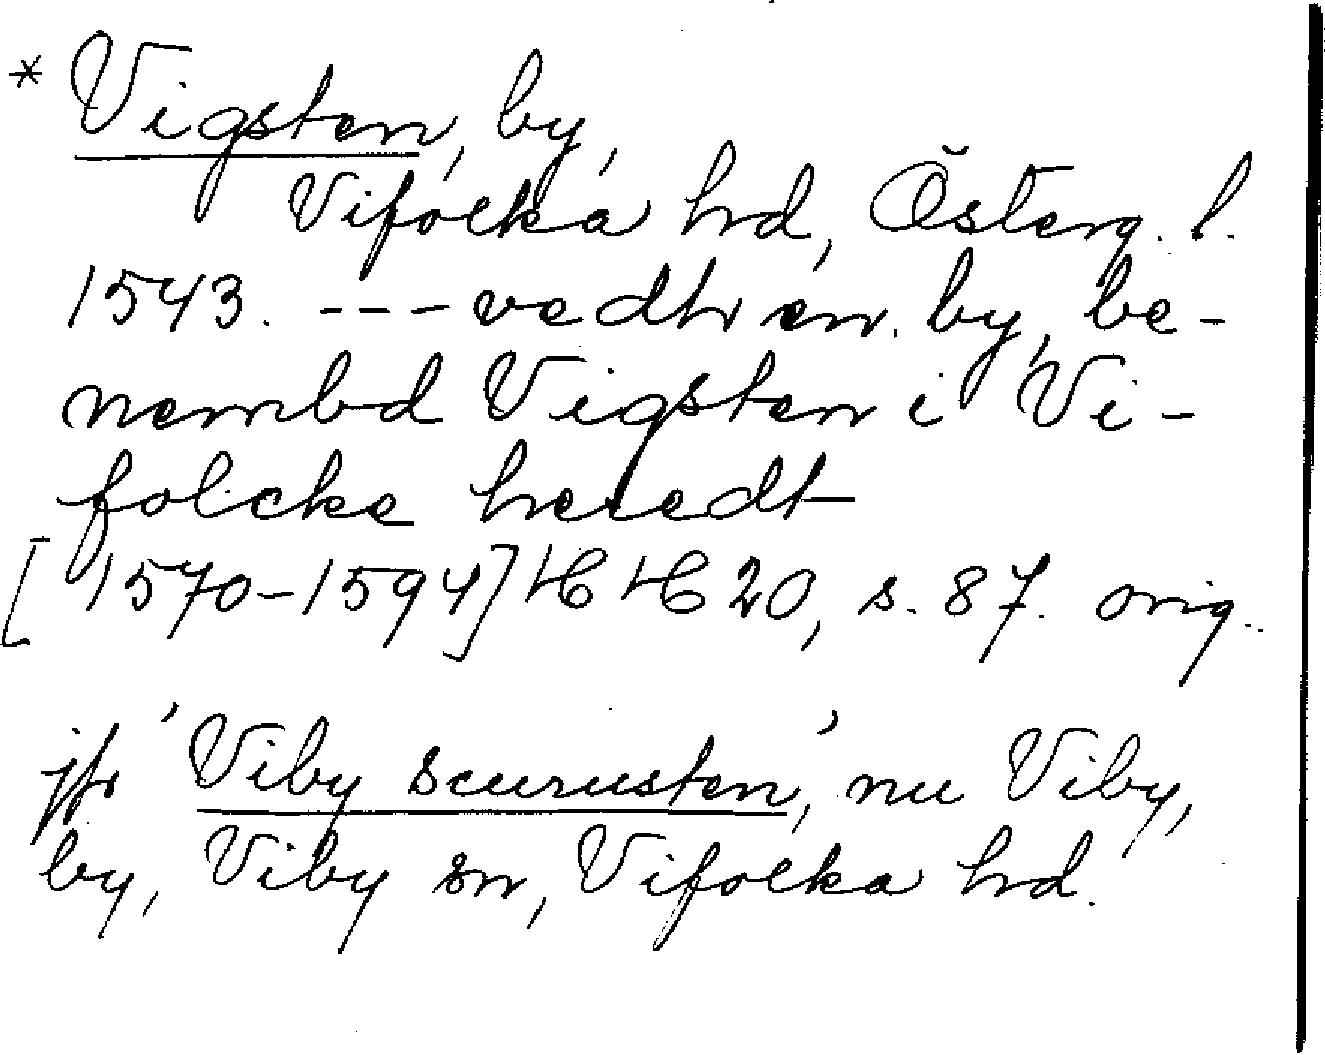 * Vigsten, by,
Vifolka hrd, Österg. l.
1543. --- vedh en by, be-
nembd Vigsten i Vi-
folcke heredt
[1570-1594] HH 20, s. 87. orig.
jfr 'Viby scurusten', nu Viby,
by, Viby sn, Vifolka hrd.